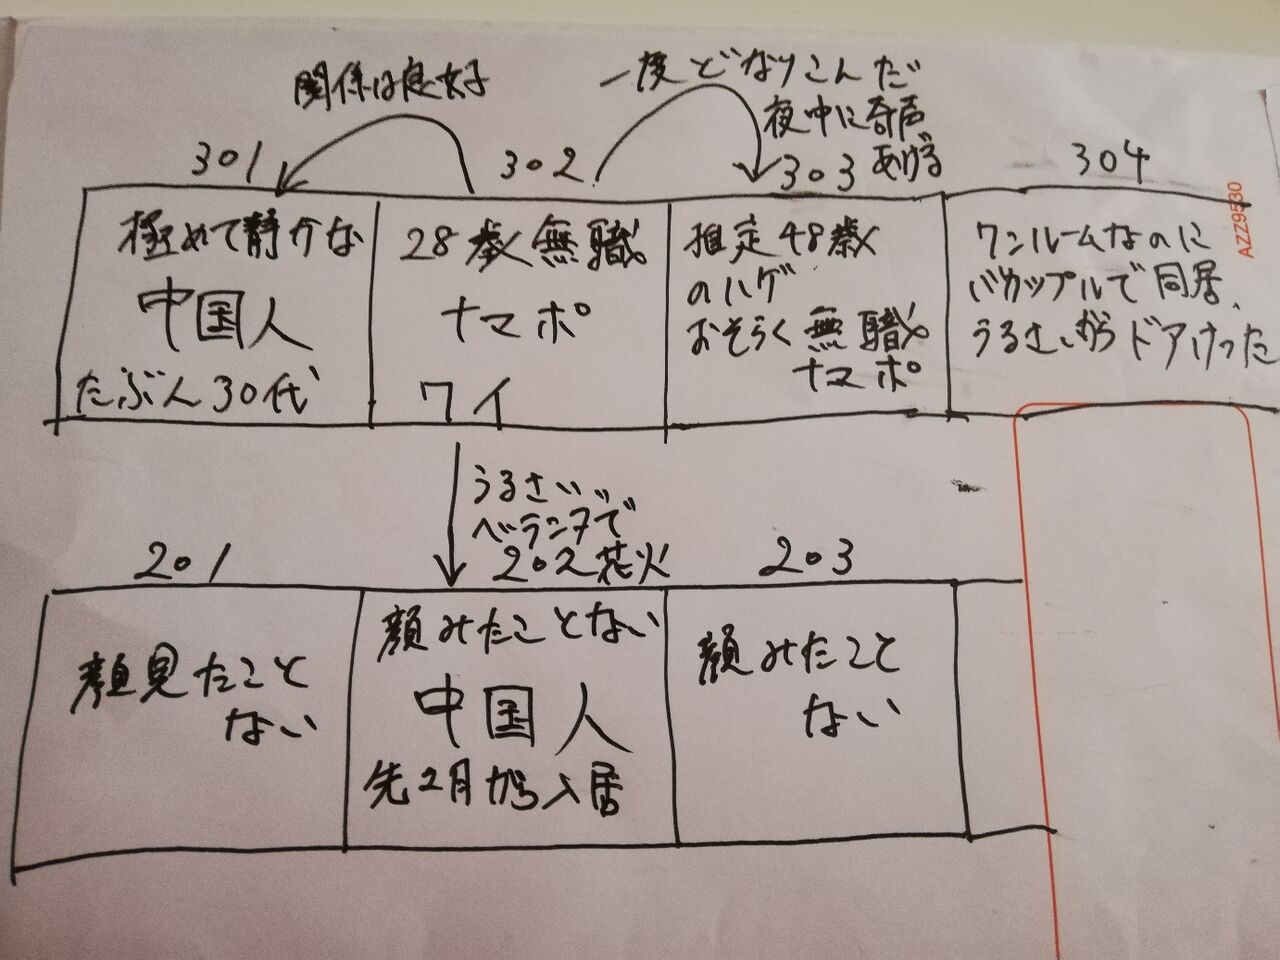 関係は良好
一度どなりこんだ
夜中に奇声
あげる
301
302
303
304
極めて静かな
中国人
たぶん30代
28歳無職
ナマポ
ワイ
推定48歳
のハゲ
おそらく無職
ナマポ
ワンルームなのに
バカップルで同居、
うるさいからドアけった
AZZ9530
うるさい
ベランダで
花火
201
202
203
顔見たこと
ない
顔みたことない
中国人
先2月から入居
顔みたこと
ない